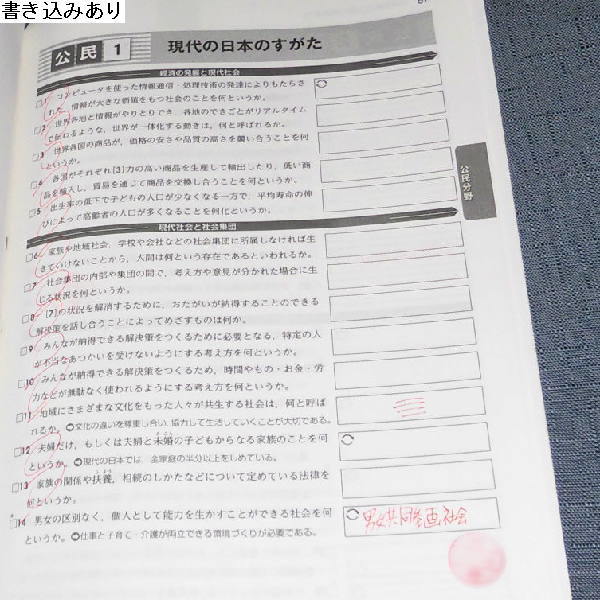 書き込みあり
公民 1 現代の日本のすがた
経済の発展と現代社会
□1 コンピュータを使った情報通信・処理技術の発達によりもたらさ
れた，情報が大きな価値をもつ社会のことを何というか。
□2 世界各地と情報がやりとりでき，各地のできごとがリアルタイム
で伝わるような，世界が一体化する動きは，何と呼ばれるか。
□3 世界各国の商品が，価格の安さや品質の高さを競い合うことを何
というか。
□4 各国がそれぞれ[3]力の高い商品を生産して輸出したり，低い商
品を輸入し，貿易を通じて商品を交換し合うことを何というか。
□5 出生率の低下で子どもの人口が少なくなる一方で，平均寿命の伸
びによって高齢者の人口が多くなることを何化というか。
公民分野
現代社会と社会集団
□6 家族や地域社会，学校や会社などの社会集団に所属しなければ生
きていけないことから，人間は何という存在であるといわれるか。
□7 社会集団の内部や集団の間で，考え方や意見が分かれた場合に生
じる状況を何というか。
□8 [7]の状況を解消するために，おたがいが納得することのできる
解決策を話し合うことによってめざすものは何か。
□9 みんなが納得できる解決策をつくるために必要となる，特定の人
が不当なあつかいを受けないようにする考え方を何というか。
□10 みんなが納得できる解決策をつくるため，時間やもの・お金・労
力などが無駄なく使われるようにする考え方を何というか。
□11 地域にさまざまな文化をもった人々が共生する社会は，何と呼ば
れるか。文化の違いを尊重し合い，協力して生活していくことが大切である。
□12 夫婦だけ，もしくは夫婦と未婚の子どもからなる家族のことを何
というか。現代の日本では，全家庭の半分以上をしめている。
□13 家族の関係や扶養，相続のしかたなどについて定めている法律を
何というか。
□14 男女の区別なく，個人として能力を生かすことができる社会を何
というか。仕事と子育て・介護が両立できる環境づくりが必要である。
男女共同参画社会